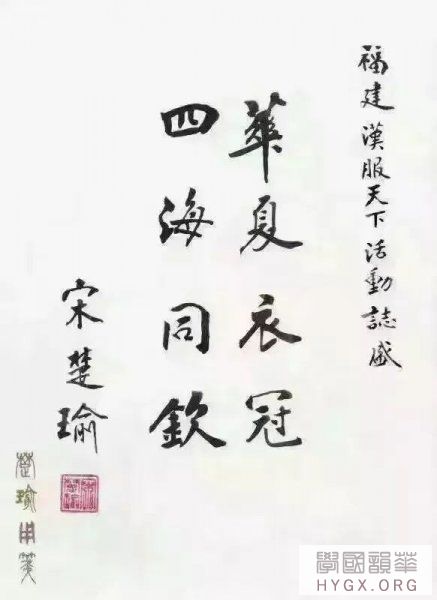 福建漢服天下活動誌盛
華夏衣冠
四海同欽
宋楚瑜
楚瑜用箋
華韻國學
HYGX.ORG